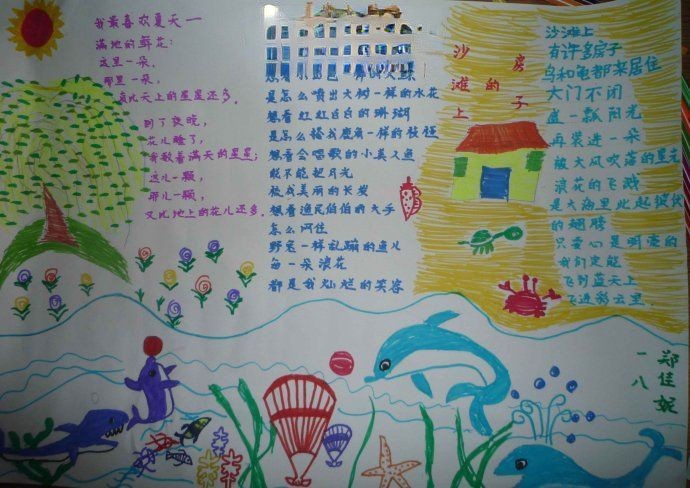 我最喜欢夏天一
满地的鲜花:
这里一朵,
那里一朵,
真比天上的星星还多.
到了夜晚,
花儿睡了,
我数着满天的星星;
这儿一颗,
那儿一颗,
又比地上的花儿还多.
是怎么喷出大树一样的水花
想看红红白白的珊瑚
是怎么搭成鹿角一样的枝桠
想看会唱歌的小美人鱼
能不能把月光
梳成美丽的长发
想看渔民伯伯的大手
怎么网住
野兔一样乱蹦的鱼儿
每一朵浪花
都是我灿烂的笑容
沙滩上
的
房子
沙滩上
有许多房子
鸟和龟都来居住
大门不闭
盛一瓢阳光
再装进一朵
被大风吹落的星光
浪花的飞溅
是大海里此起彼伏
的翅膀
只要心是明亮的
我们定能
飞到蓝天上
飞进彩云里
一八
郑佳妮